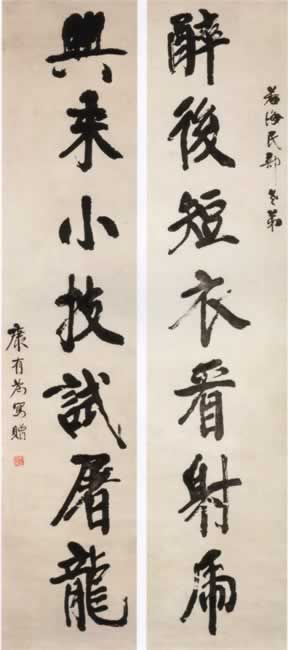 若海民部老弟
醉後短衣看射虎
興來小技試屠龍
康有為寫贈